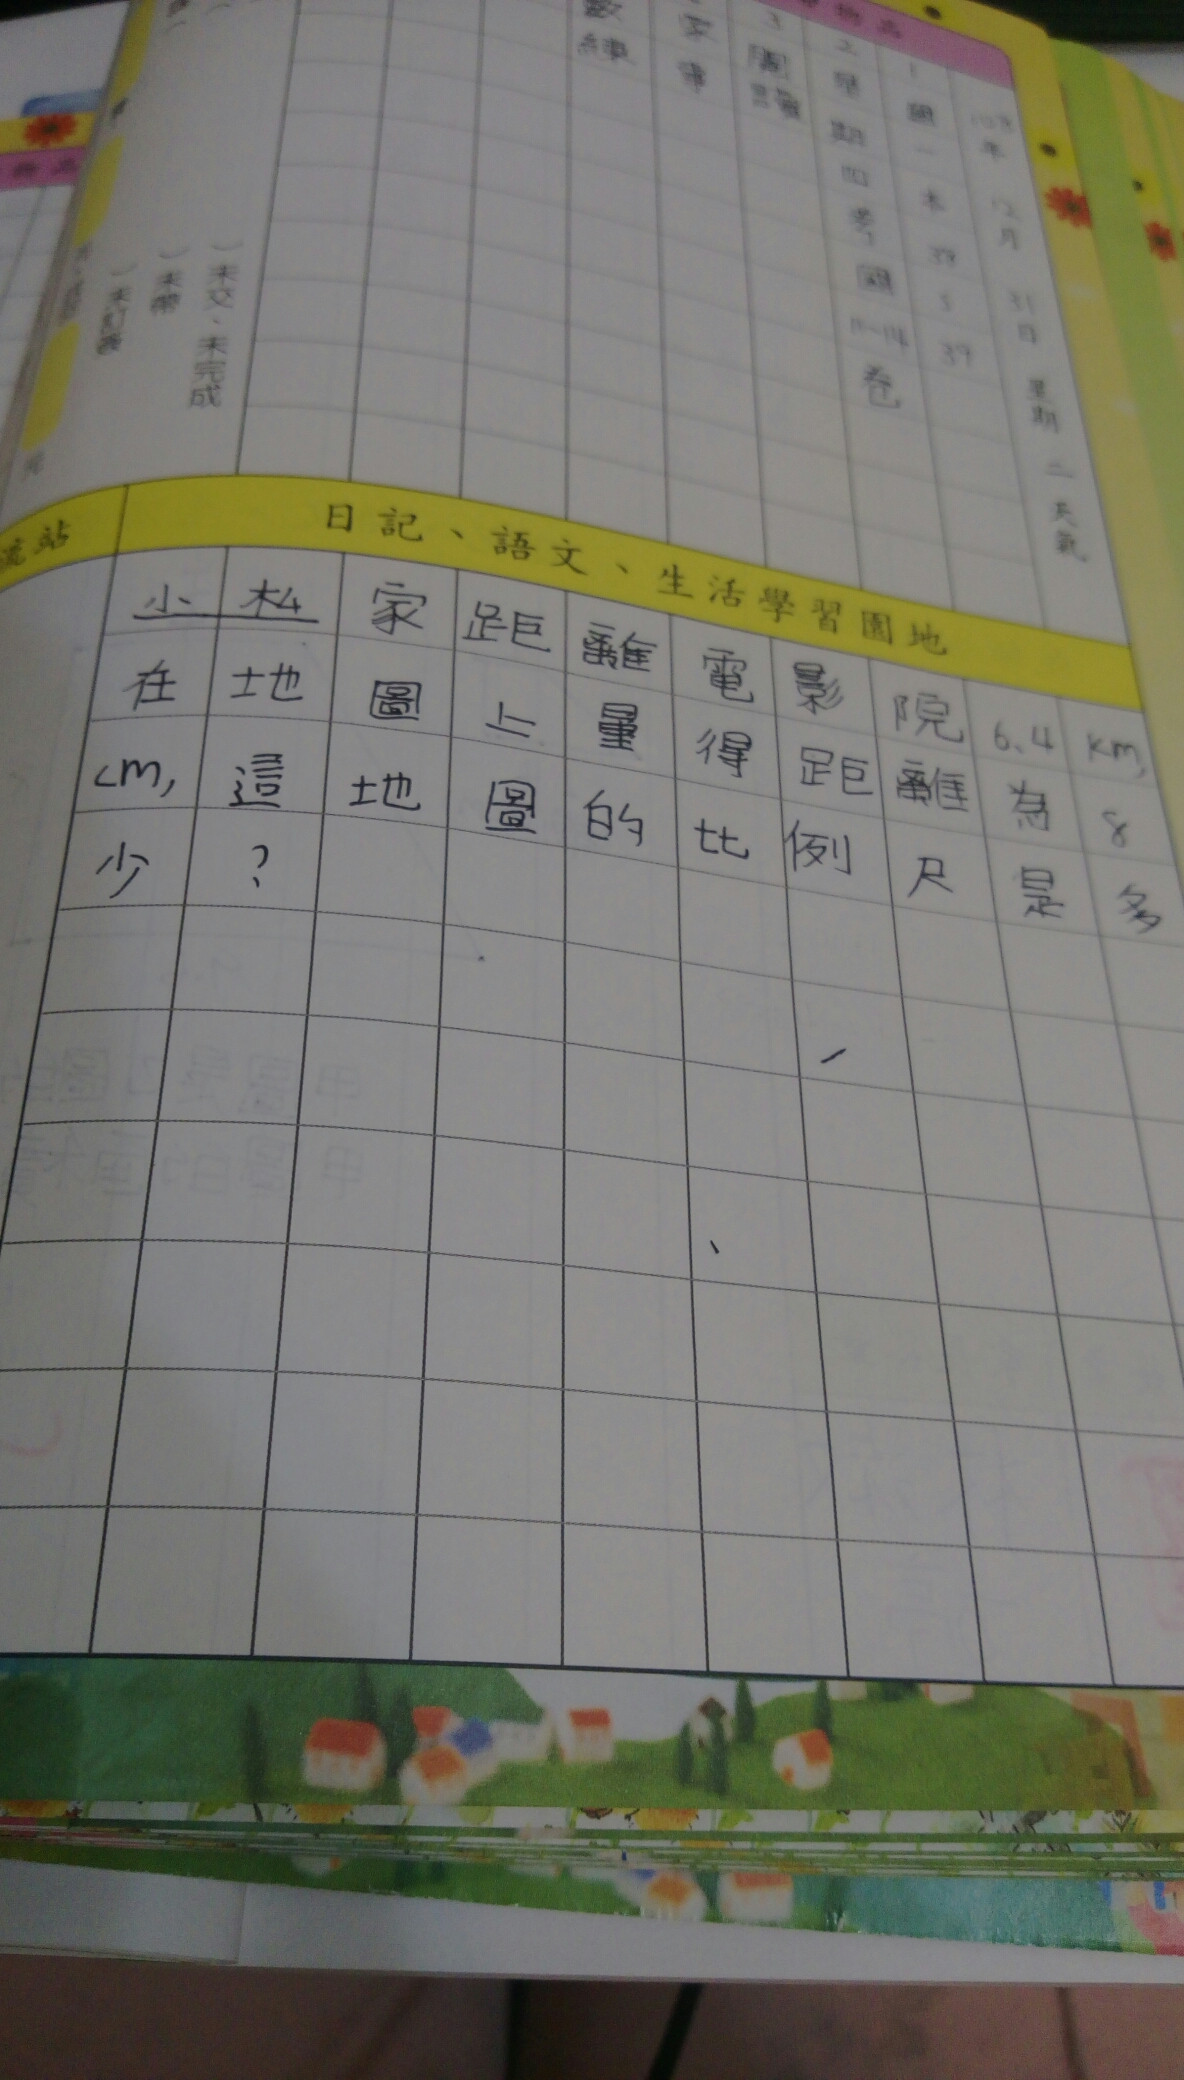 108年12月31日星期二天氣
1國一本39 5 39
2星期四考國11-14卷
3閱讀
家事
數練
)未交、未完成
)未帶
)未訂喪
流站
日記、語文、生活學習園地
小松家距離電影院6.4km,
在地圖上量得距離為8
cm,這地圖的比例尺是多
少?